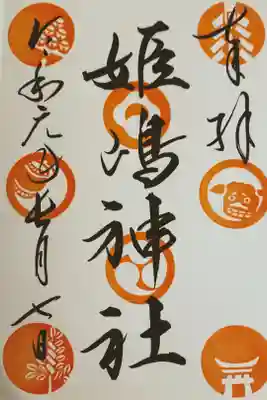 奉拝
姫嶋神社
令和元年長月七日